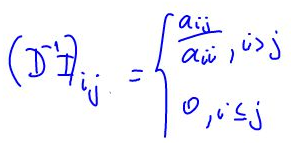 (D⁻¹I)ᵢⱼ = { aᵢⱼ / aᵢᵢ , i>j
0, i≤j